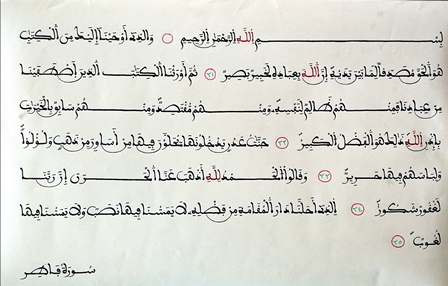 بسم الله الرحمن الرحيم ۝ والذي أوحينا إليك من الكتب
هو الحق مصدقا لما بين يديه إن الله بعباده لخبير بصير ٣١ ثم أورثنا الكتب الذين اصطفينا
من عبادنا فمنهم ظالم لنفسه ومنهم مقتصد ومنهم سابق بالخيرت
بإذن الله ذلك هو الفضل الكبير ٣٢ جنت عدن يدخلونها يحلون فيها من أساور من ذهب ولؤلؤا
ولباسهم فيها حرير ٣٣ وقالوا الحمد لله الذي أذهب عنا الحزن إن ربنا
لغفور شكور ٣٤ الذي أحلنا دار المقامة من فضله لا يمسنا فيها نصب ولا يمسنا فيها
لغوب ٣٥
سورة فاطر